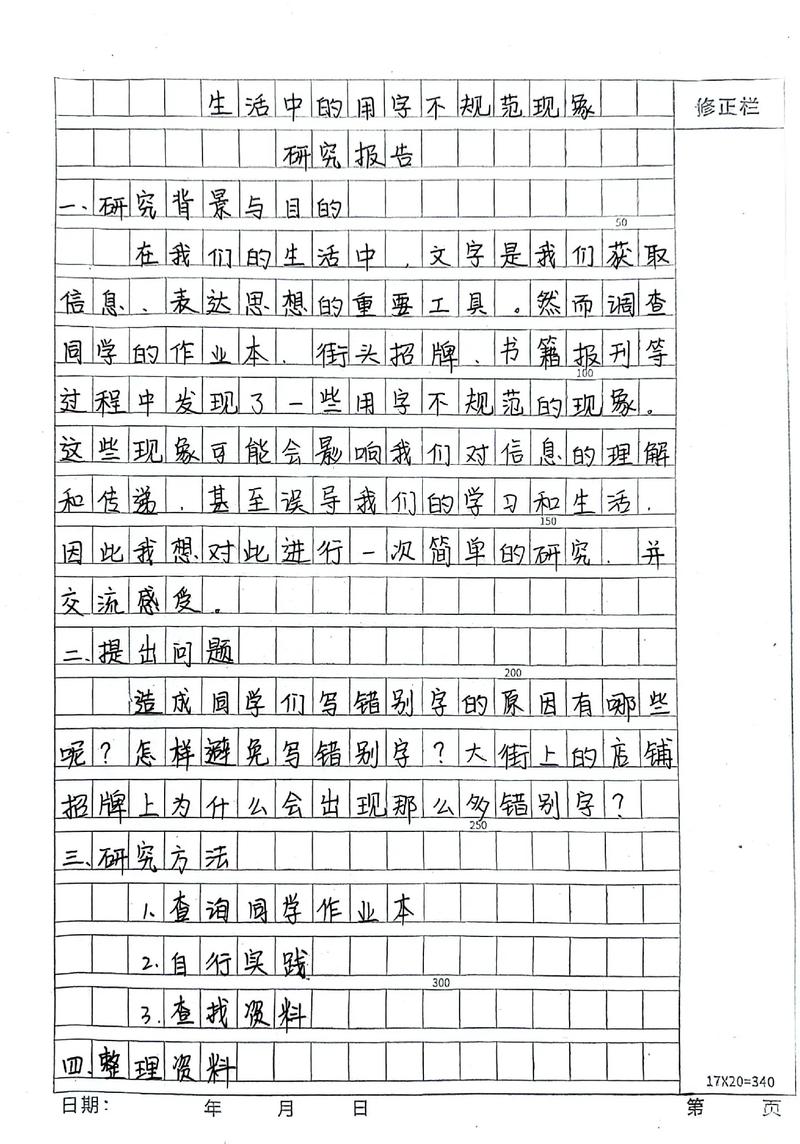 生活中的用字不规范现象
修正栏
研究报告
一、研究背景与目的
50
在我们的生活中，文字是我们获取
信息、表达思想的重要工具。然而调查
同学的作业本、街头招牌、书籍报刊等
100
过程中发现了一些用字不规范的现象。
这些现象可能会影响我们对信息的理解
和传递，甚至误导我们的学习和生活，
150
因此我想对此进行一次简单的研究，并
交流感受。
二、提出问题
200
造成同学们写错别字的原因有哪些
呢？怎样避免写错别字？大街上的店铺
招牌上为什么会出现那么多错别字？
250
三、研究方法
1、查询同学作业本
2、自行实践
300
3、查找资料
四、整理资料
17X20=340
日期： 年 月 日 第 页